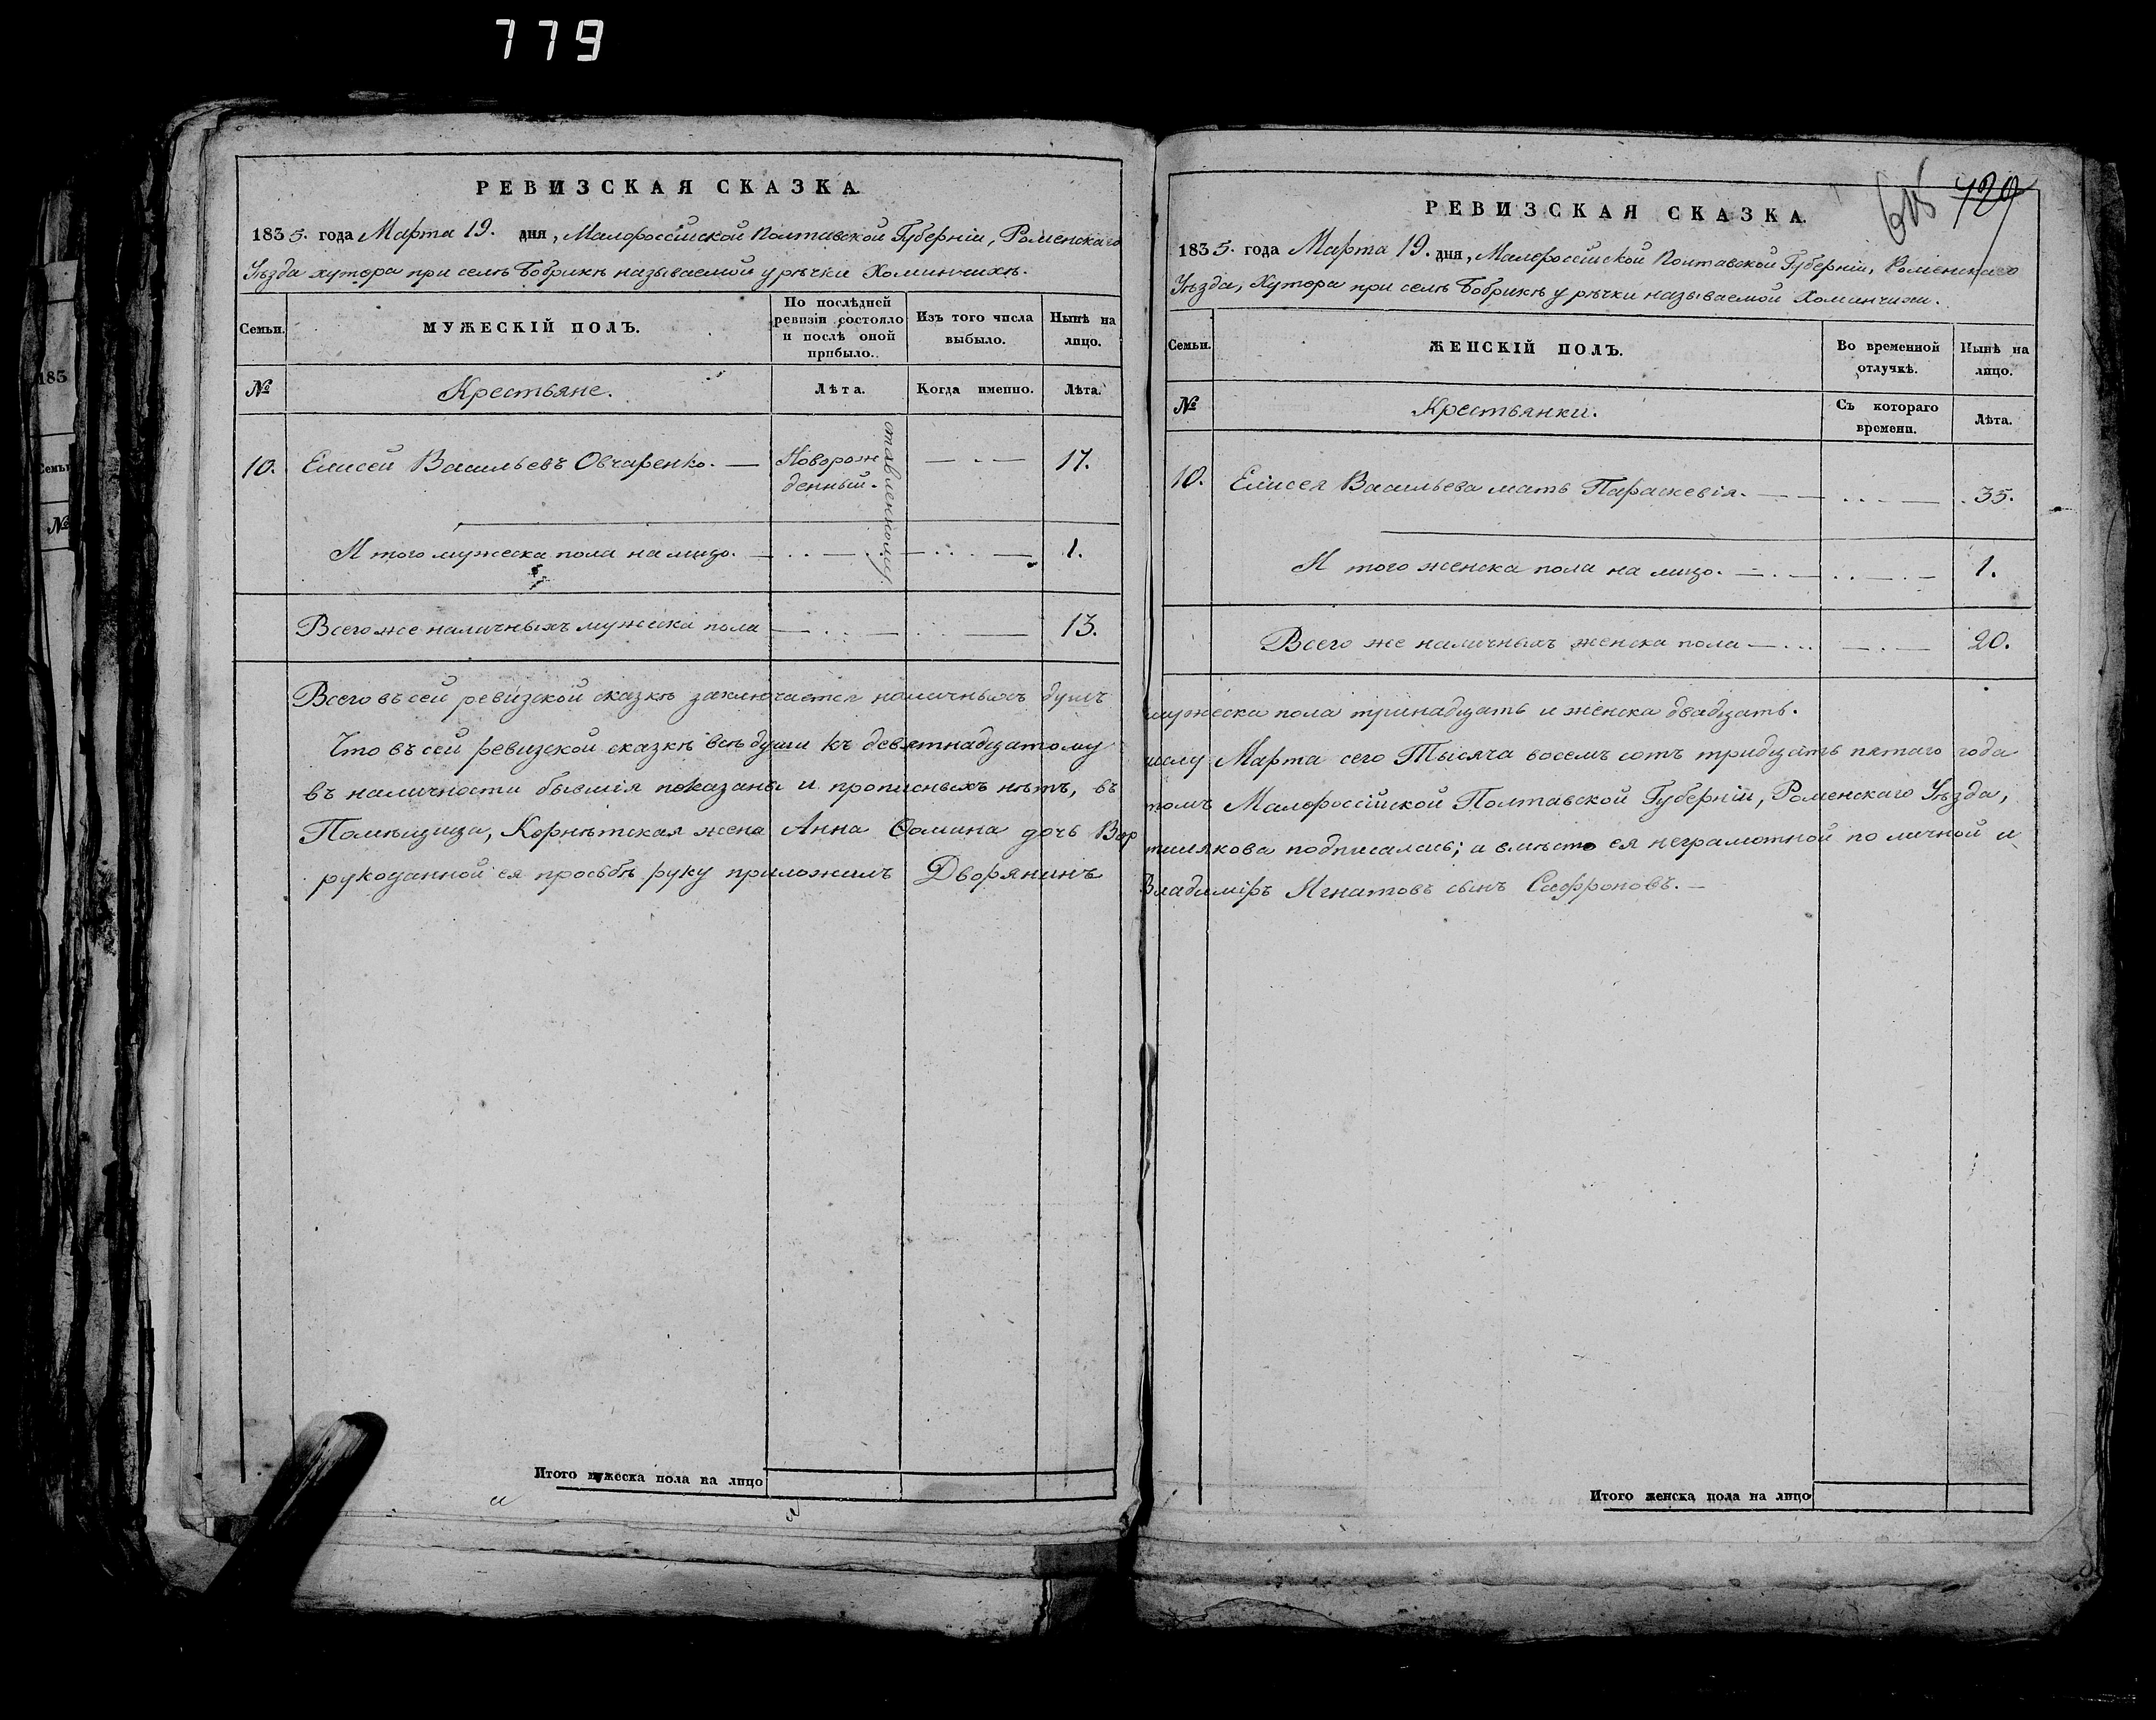 779
183
Семьи
№
РЕВИЗСКАЯ СКАЗКА.
1835. года Марта 19. дня, Малороссійской Полтавской Губерніи, Роменскаго
Уѣзда хутора при селѣ Бобрикѣ называемой у рѣчки Хоминчихѣ.
Семьи.
МУЖЕСКІЙ ПОЛЪ.
По послѣдней ревизіи состояло и послѣ оной прибыло.
Изъ того числа выбыло.
Нынѣ на лицо.
№
Крестьяне.
Лѣта.
Когда именно.
Лѣта.
10. Елисей Васильевъ Овчаренко. — Новорож — . — 17.
денный.
ставленному
И того мужеска пола на лицо. — 1.
Всего же наличныхъ мужеска пола — 13.
Всего въ сей ревизской сказкѣ заключается наличныхъ душъ
Что въ сей ревизской сказкѣ всѣ души къ девятнадцатому
въ наличности бывшія показаны и прописныхъ нѣтъ, въ
Помѣщица, Корнетская жена Анна Фомина дочь Вор
рукоданной ея прозьбѣ руку приложилъ Дворянинъ
Итого мужеска пола на лицо
720
РЕВИЗСКАЯ СКАЗКА.
1835. года Марта 19. дня, Малороссійской Полтавской Губерніи, Роменскаго
Уѣзда, Хутора при селѣ Бобрикѣ у рѣчки называемой Хоминчихи.
Семьи.
ЖЕНСКІЙ ПОЛЪ.
Во временной отлучкѣ.
Нынѣ на лицо.
№
Крестьянки.
Съ котораго времени.
Лѣта.
10. Елисея Васильева мать Параскевія. — 35.
И того женска пола на лицо. — 1.
Всего же наличныхъ женска пола — 20.
мужеска пола тринадцать и женска двадцать.
числу Марта сего Тысяча восемъ сотъ тридцать пятаго года
томъ Малороссійской Полтавской Губерніи, Роменскаго Уѣзда,
подписалась; а вмѣсто ея неграмотной по личной и
Владиміръ Игнатовъ сынъ Сафроновъ. —
Итого женска пола на лицо